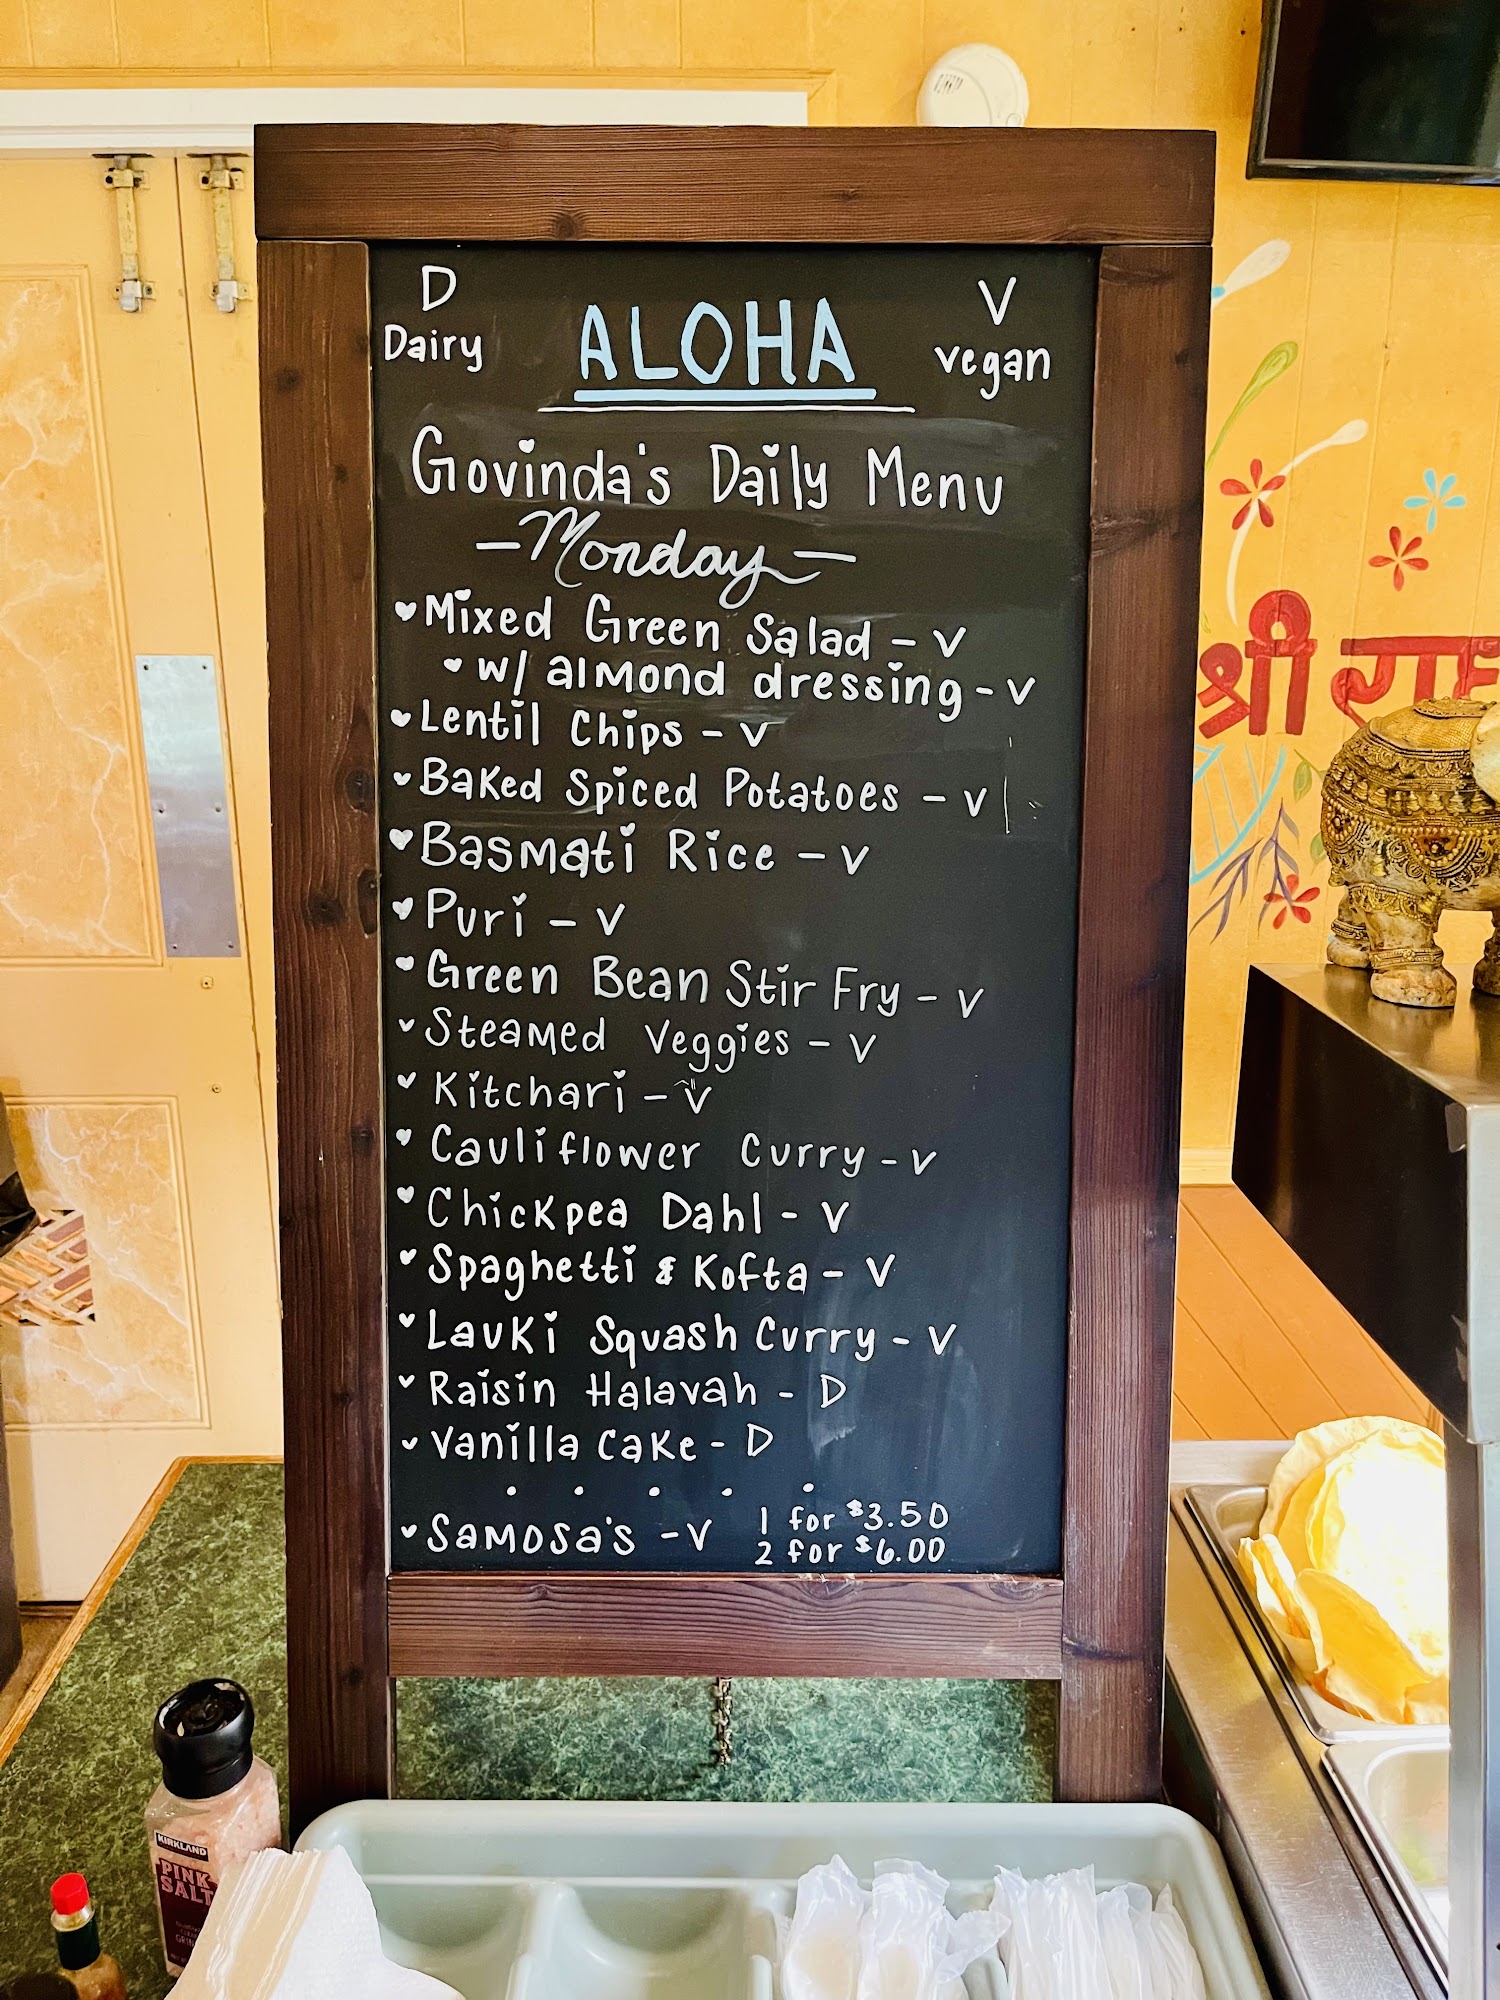 D
Dairy
ALOHA
V
vegan
Govinda's Daily Menu
- Monday -
Mixed Green Salad - V
w/ almond dressing - V
Lentil Chips - V
Baked Spiced Potatoes - V
Basmati Rice - V
Puri - V
Green Bean Stir Fry - V
Steamed Veggies - V
Kitchari - V
Cauliflower Curry - V
Chickpea Dahl - V
Spaghetti & Kofta - V
Lauki Squash Curry - V
Raisin Halavah - D
Vanilla Cake - D
Samosa's - V 1 for $3.50
2 for $6.00
श्री
KIRKLAND
PINK
SALT